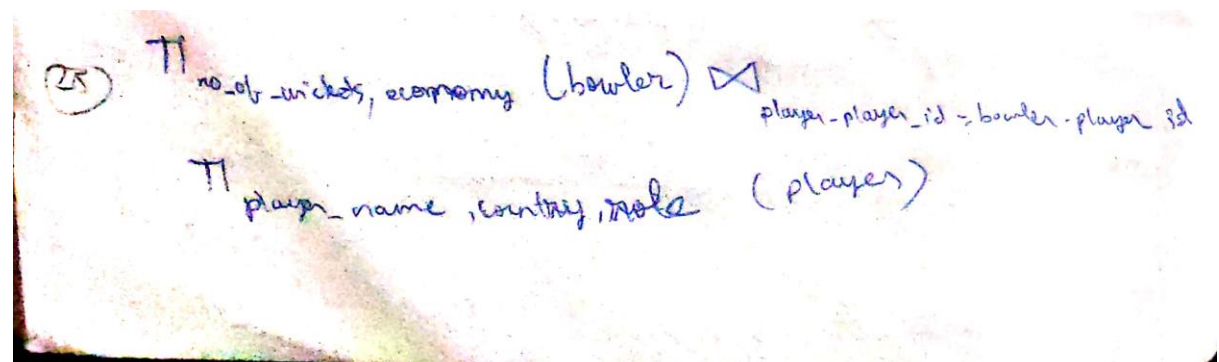 25) Π no_of_wickets, economy (bowler) ⋈ player.player_id = bowler.player_id
Π player_name, country, role (player)